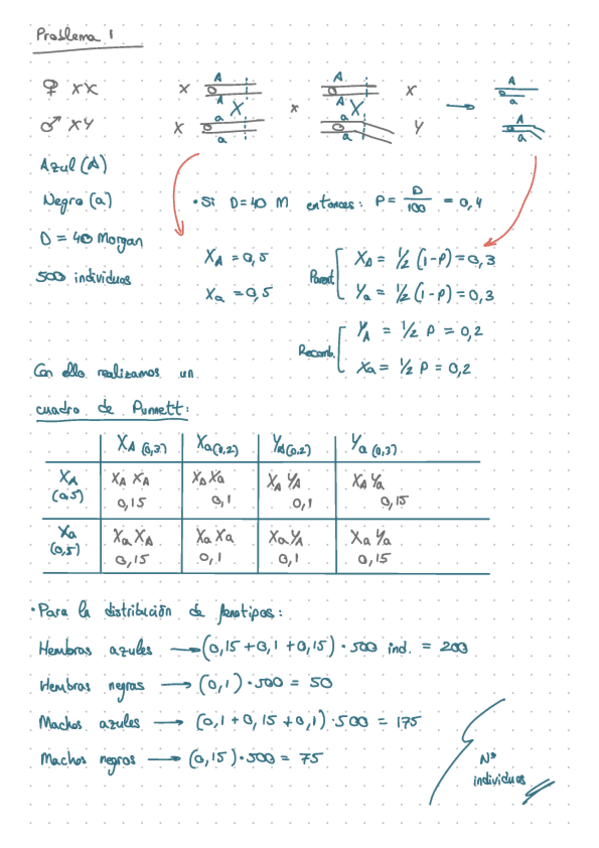 Problema 1
♀ XX
♂ XY
X A A X A
X a a Y a
x
Azul (A)
Negro (a)
D = 40 Morgan
500 individuos
• Si D=40 M entonces: P = D/100 = 0,4
XA = 0,5
Xa = 0,5
Parent. XA = 1/2 (1-P) = 0,3
Ya = 1/2 (1-P) = 0,3
Recomb. YA = 1/2 P = 0,2
Xa = 1/2 P = 0,2
Con ello realizamos un
cuadro de Punnett:
XA (0,3) Xa (0,2) YA (0,2) Ya (0,3)
XA (0,5) XA XA 0,15 XA Xa 0,1 XA YA 0,1 XA Ya 0,15
Xa (0,5) Xa XA 0,15 Xa Xa 0,1 Xa YA 0,1 Xa Ya 0,15
• Para la distribución de fenotipos:
Hembras azules → (0,15 + 0,1 + 0,15) · 500 ind. = 200
Hembras negras → (0,1) · 500 = 50
Machos azules → (0,1 + 0,15 + 0,1) · 500 = 175
Machos negros → (0,15) · 500 = 75
Nº
individuos